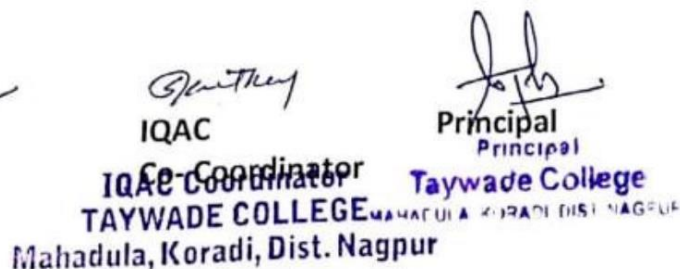 IQAC
Co- Coordinator
IQAC Coordinator
TAYWADE COLLEGE
Mahadula, Koradi, Dist. Nagpur
Principal
Principal
Taywade College
MAHADULA KORADI DIST NAGPUR